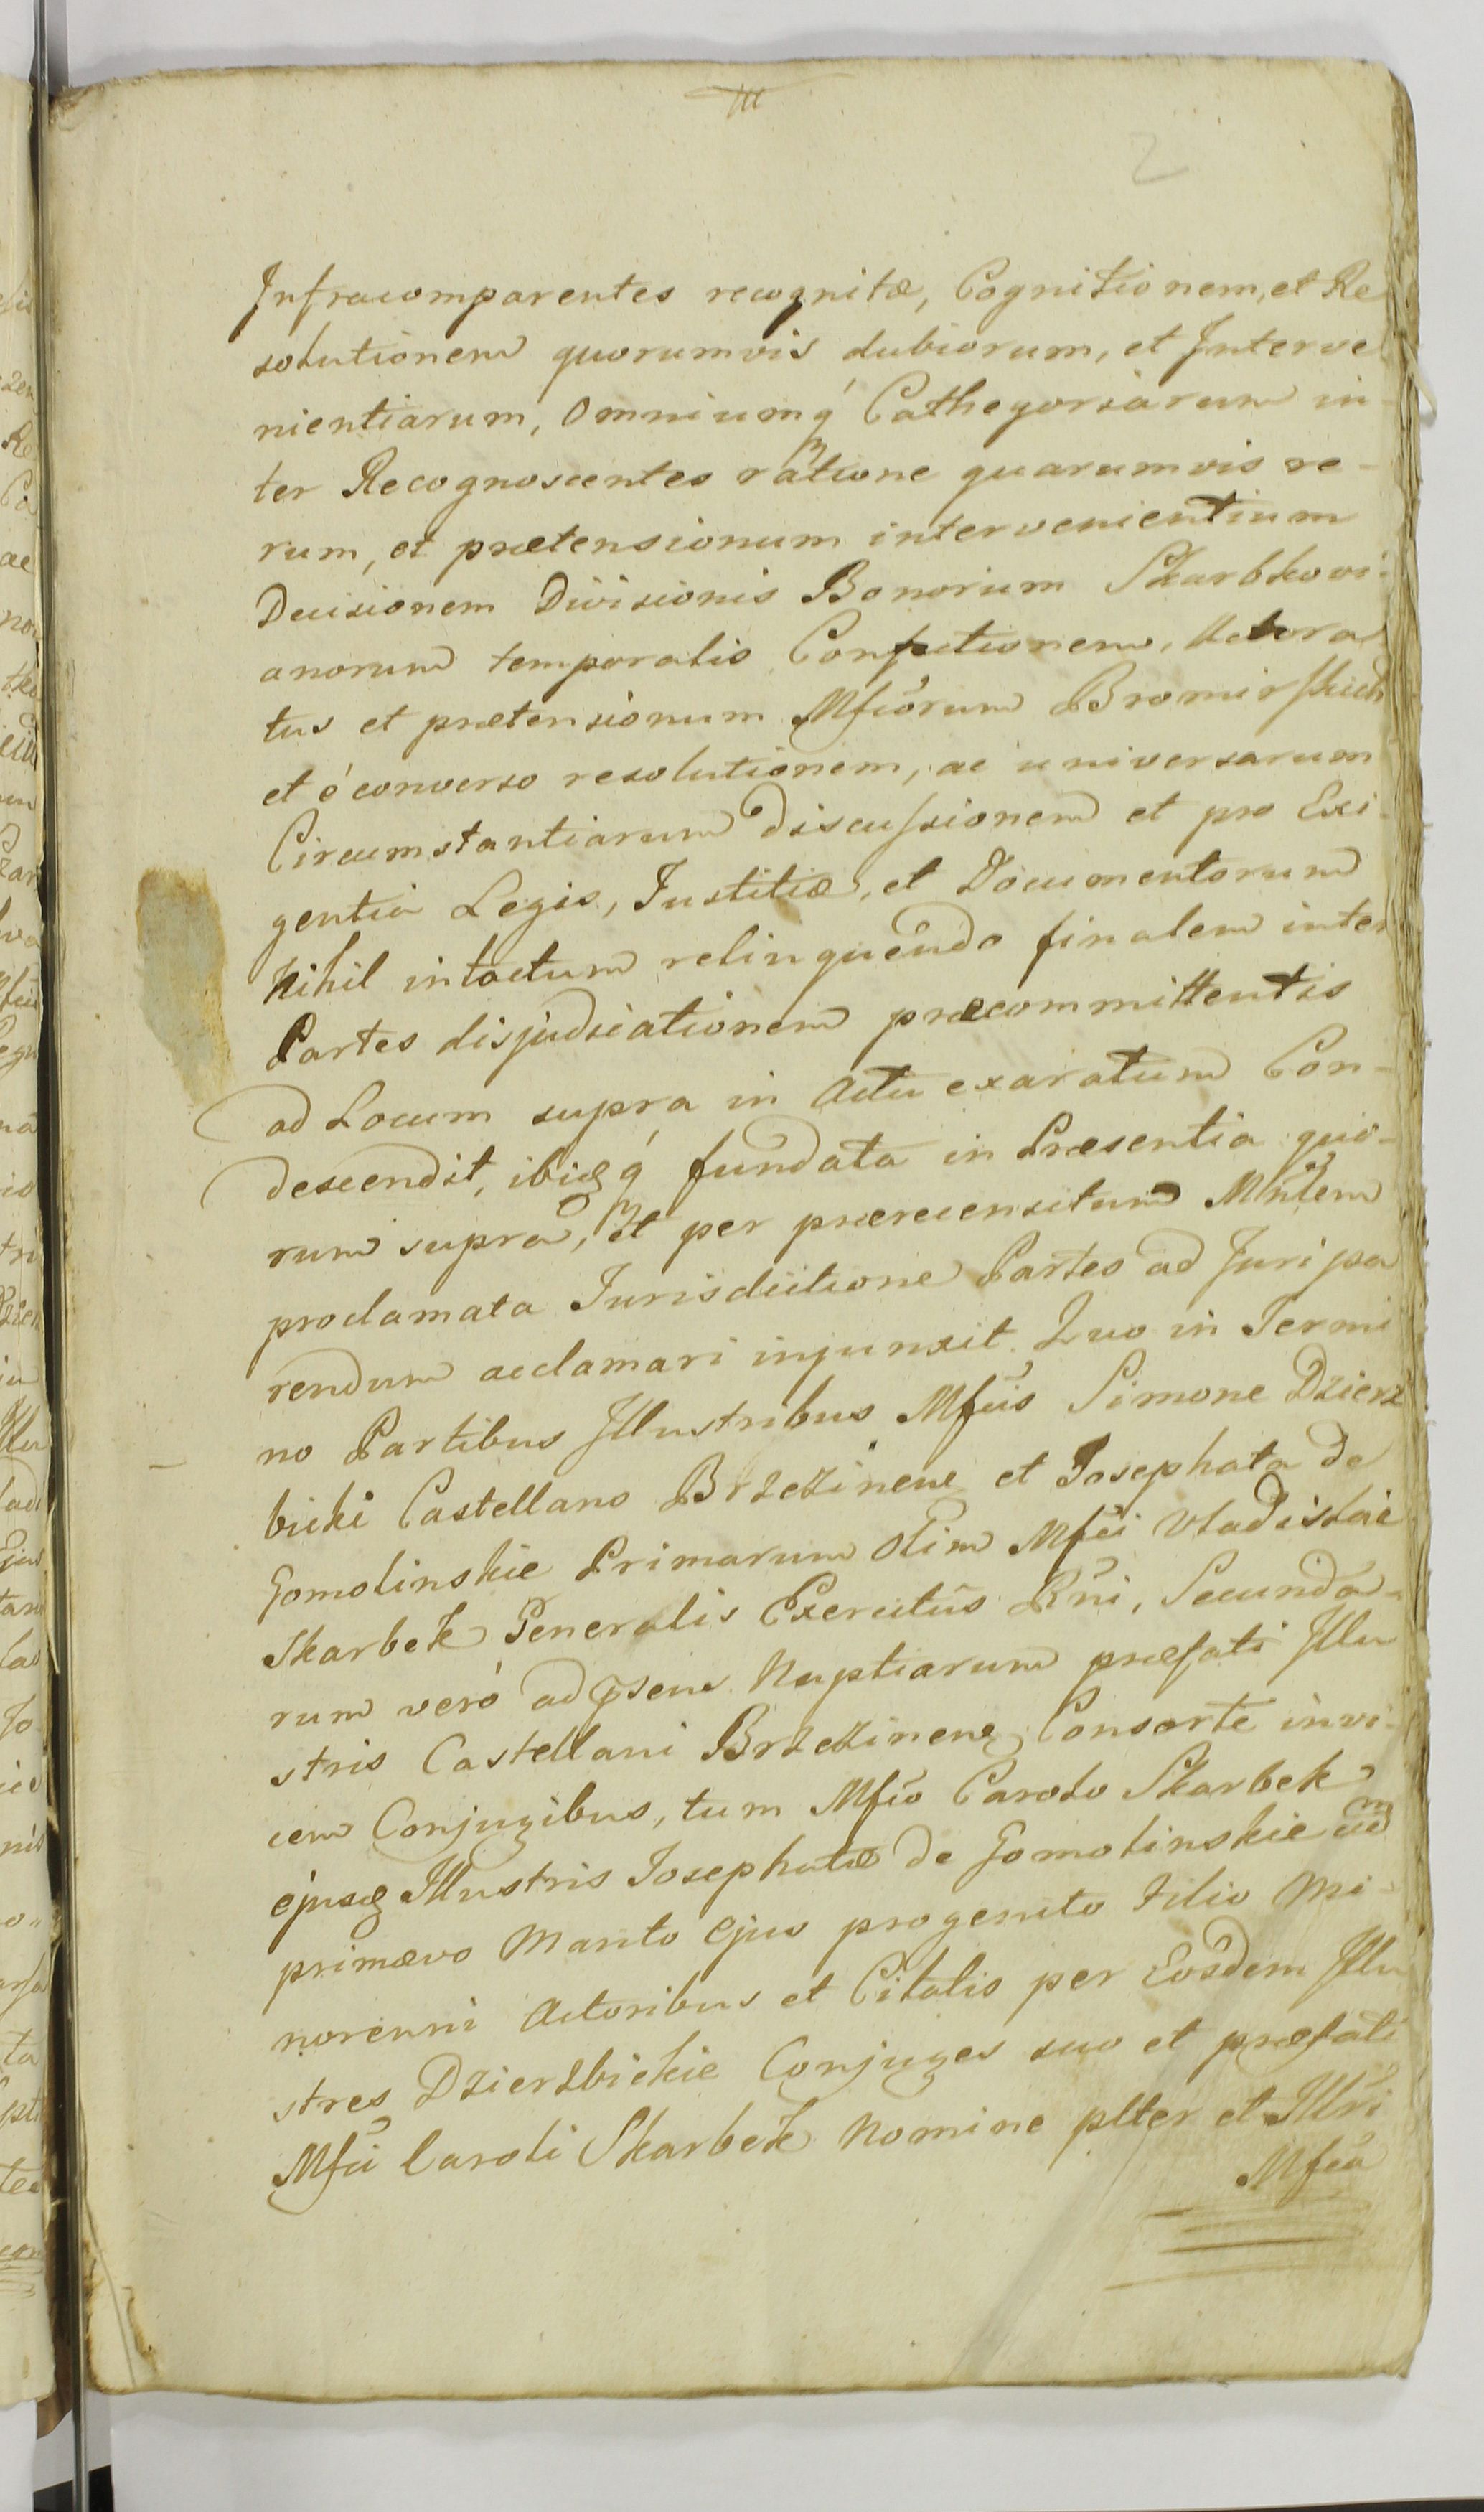 m
2
Infracomparentes recognitæ, Cognitionem, et Re
solutionem quorumvis dubiorum, et Interve
nientiarum, Omniumq́ Cathegoriarum in-
ter Recognoscentes ratione quarumvis re-
rum, et prætensionum intervenientium
Decisionem Divisionis Bonorum Skarbkovi-
anorum temporalis
tus et prætensionum Mfcorum Bromirskich
et è converso resolutionem, ac universarum
Circumstantiarum discussionem et pro Exi-
gentia Legis, Justitiæ, et Documentorum
Nihil intactum relinquendo finalem inter
Partes disjudicationem præcommittentis
ad Locum supra in Actu exaratum Con-
descendit, ibiq q́ fundata in Præsentia quo-
rum supra, et per prærecensitum Mnrlem
proclamata Jurisdictione Partes ad Juri pa
rendum acclamari injunxit. Quo in Termi
no Partibus Illustribus Mfcis Simone Dzierz
bicki Castellano Brzezinen et Josephata de
Gomolinskie Primarum olim Mfci Vladislai
Skarbek Generalis Exercitûs Rni, Secunda-
rum verò ad psens Nuptiarum præfati Illu
stris Castellani Brzezinen Consorte invi-
cem Conjugibus, tum Mfco Carolo Skarbek
ejusq Illustris Josephatæ de Gomolinskie cũ
primævo Marito Ejus progenito Filio Mi-
norenni Actoribus et Citatis per Eosdem Illu
stres Dzierzbickie Conjuges suo et præfati
Mfci Caroli Skarbek Nomine plter et Illri
Mfca